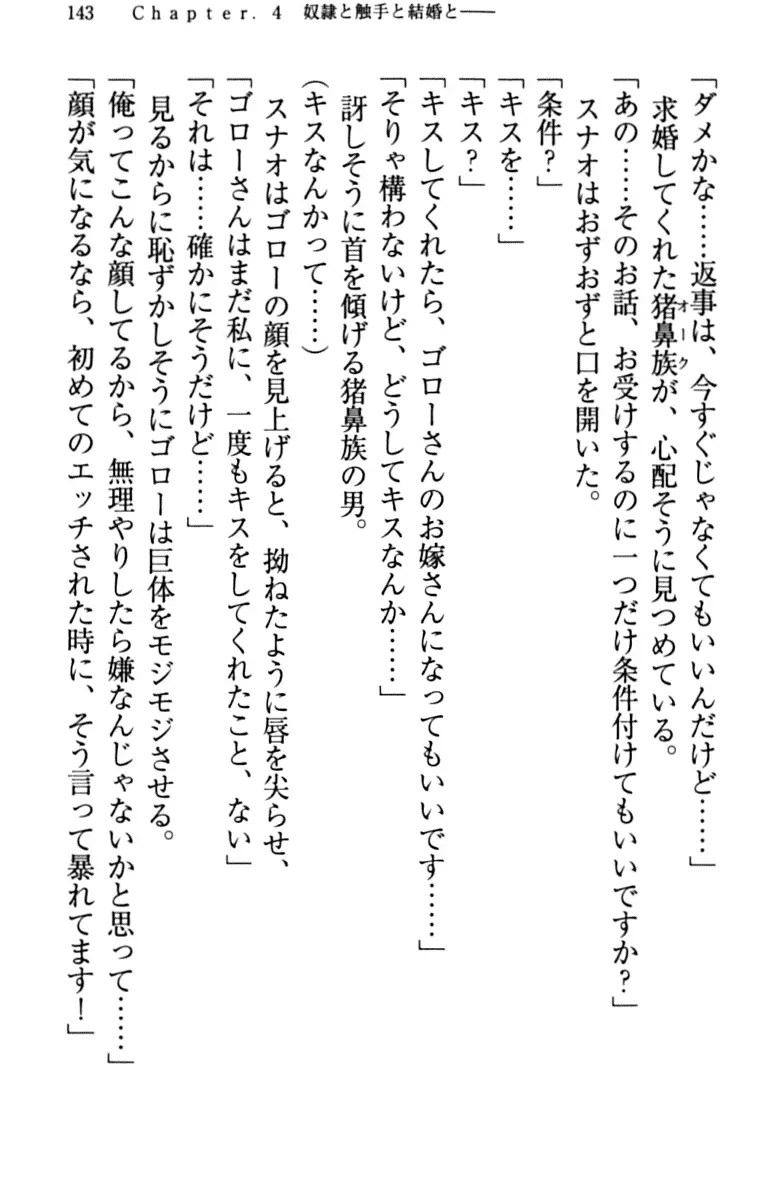 143　Chapter. 4　奴隷と触手と結婚と――
「ダメかな……返事は、今すぐじゃなくてもいいんだけど……」
求婚してくれた猪鼻族オークが、心配そうに見つめている。
「あの……そのお話、お受けするのに一つだけ条件付けてもいいですか？」
スナオはおずおずと口を開いた。
「条件？」
「キスを……」
「キス？」
「キスしてくれたら、ゴローさんのお嫁さんになってもいいです……」
「そりゃ構わないけど、どうしてキスなんか……」
訝しそうに首を傾げる猪鼻族の男。
（キスなんかって……）
スナオはゴローの顔を見上げると、拗ねたように唇を尖らせ、
「ゴローさんはまだ私に、一度もキスをしてくれたこと、ない」
「それは……確かにそうだけど……」
見るからに恥ずかしそうにゴローは巨体をモジモジさせる。
「俺ってこんな顔してるから、無理やりしたら嫌なんじゃないかと思って……」
「顔が気になるなら、初めてのエッチされた時に、そう言って暴れてます！」